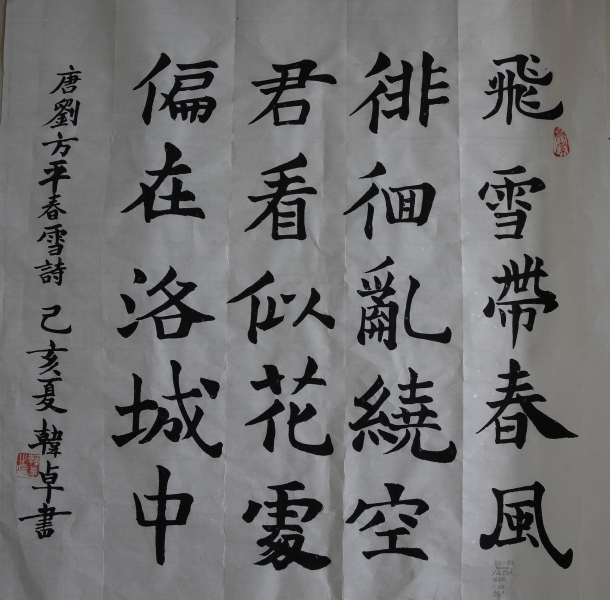 飛雪帶春風
徘徊亂繞空
君看似花處
偏在洛城中
唐劉方平春雪詩 己亥夏 韓卓書